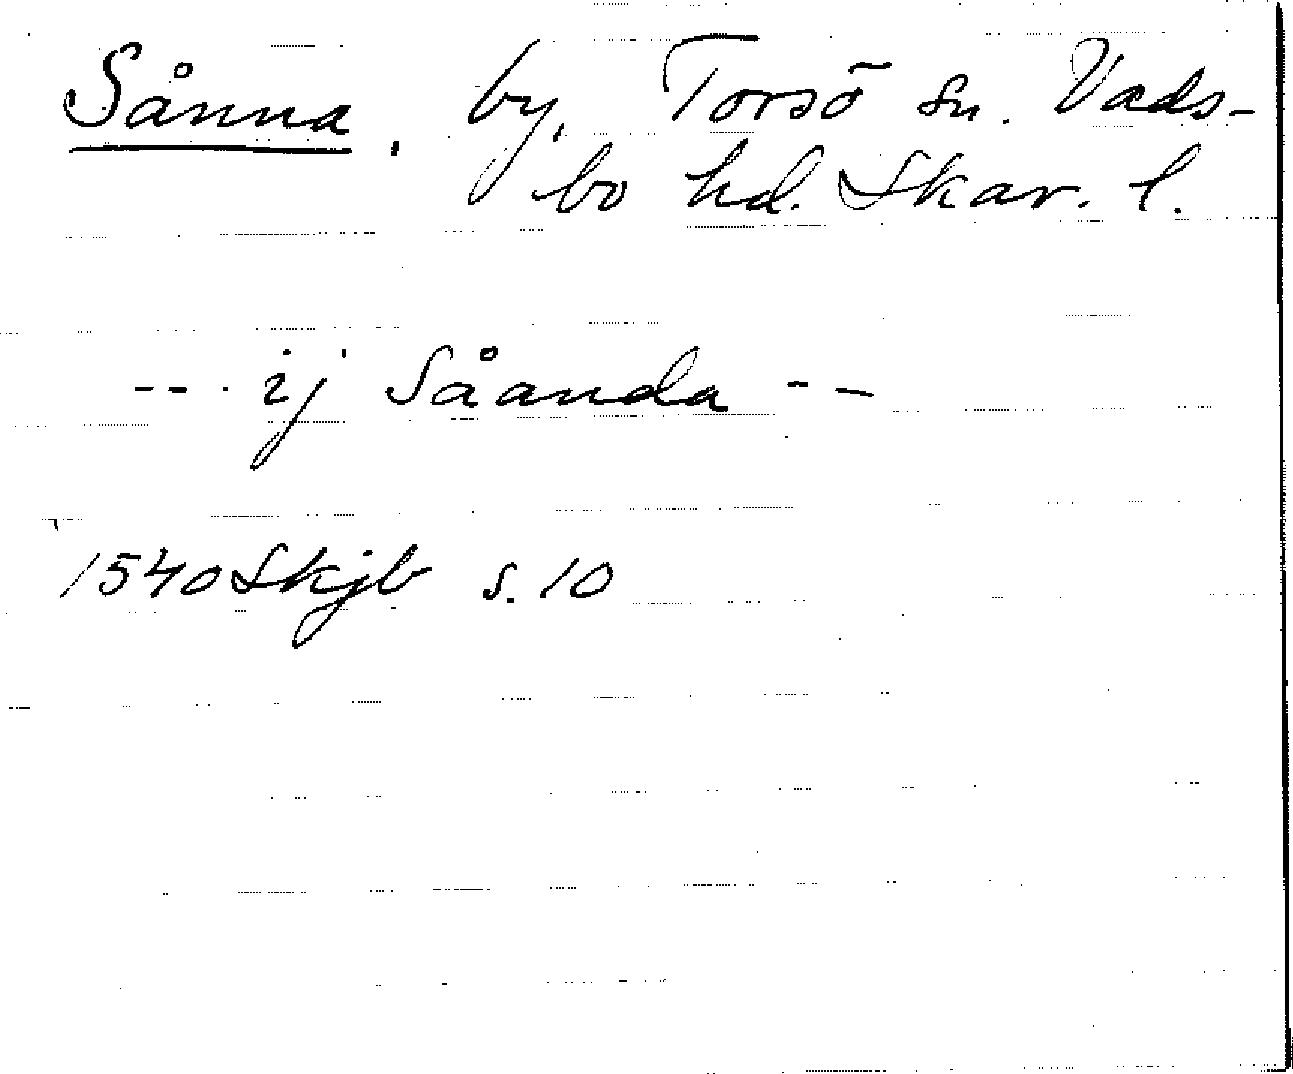 Sånna, by, Torsö sn. Vads-
bo hd. Skar. l.
-- - ij Såanda --
1540 Skjb s. 10